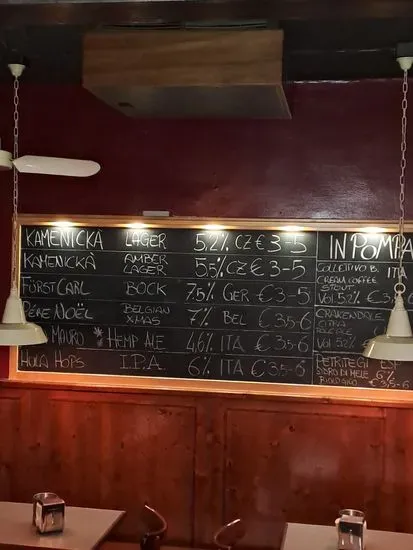 KAMENICKÁ LAGER 5.2% CZ € 3-5
KAMENICKÁ AMBER LAGER 5.5% CZ € 3-5
FÜRST CARL BOCK 7.5% GER € 3-5
PÈRE NOËL BELGIAN XMAS 7% BEL € 3.5-6
MAURO HEMP ALE 4.6% ITA € 3.5-6
HOLA HOPS I.P.A. 6% ITA € 3.5-6
IN POMPA
COLLETTIVO B. ITA
CREAM COFFEE
STOUT
VOL 5.2% €3
PETRITEGI ESP
SIDRO DI MELE 6%
BIOLOGICO €3.5-6